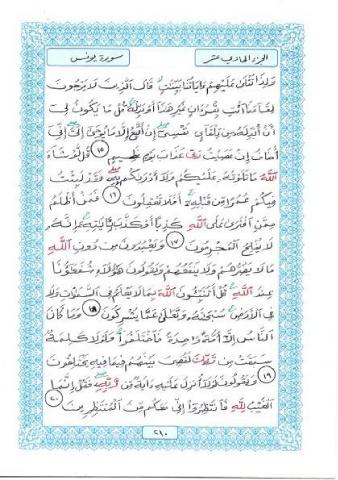 الجزء الحادي عشر
سورة يونس
وَإِذَا تُتْلَىٰ عَلَيْهِمْ ءَايَاتُنَا بَيِّنَٰتٍ قَالَ الَّذِينَ لَا يَرْجُونَ
لِقَاءَنَا ائْتِ بِقُرْءَانٍ غَيْرِ هَٰذَا أَوْ بَدِّلْهُ قُلْ مَا يَكُونُ لِي
أَنْ أُبَدِّلَهُ مِن تِلْقَاءِى نَفْسِى إِنْ أَتَّبِعُ إِلَّا مَا يُوحَىٰ إِلَىَّ إِنِّى
أَخَافُ إِنْ عَصَيْتُ رَبِّى عَذَابَ يَوْمٍ عَظِيمٍ ١٥ قُل لَّوْ شَاءَ
اللَّهُ مَا تَلَوْتُهُ عَلَيْكُمْ وَلَا أَدْرَىٰكُم بِهِ فَقَدْ لَبِثْتُ
فِيكُمْ عُمُرًا مِّن قَبْلِهِ أَفَلَا تَعْقِلُونَ ١٦ فَمَنْ أَظْلَمُ
مِمَّنِ افْتَرَىٰ عَلَى اللَّهِ كَذِبًا أَوْ كَذَّبَ بِـَٔايَٰتِهِ إِنَّهُ
لَا يُفْلِحُ الْمُجْرِمُونَ ١٧ وَيَعْبُدُونَ مِن دُونِ اللَّهِ
مَا لَا يَضُرُّهُمْ وَلَا يَنفَعُهُمْ وَيَقُولُونَ هَٰؤُلَاءِ شُفَعَٰؤُنَا
عِندَ اللَّهِ قُلْ أَتُنَبِّئُونَ اللَّهَ بِمَا لَا يَعْلَمُ فِى السَّمَٰوَٰتِ وَلَا
فِى الْأَرْضِ سُبْحَٰنَهُ وَتَعَٰلَىٰ عَمَّا يُشْرِكُونَ ١٨ وَمَا كَانَ
النَّاسُ إِلَّا أُمَّةً وَٰحِدَةً فَاخْتَلَفُوا وَلَوْلَا كَلِمَةٌ
سَبَقَتْ مِن رَّبِّكَ لَقُضِىَ بَيْنَهُمْ فِيمَا فِيهِ يَخْتَلِفُونَ
١٩ وَيَقُولُونَ لَوْلَا أُنزِلَ عَلَيْهِ ءَايَةٌ مِّن رَّبِّهِ فَقُلْ إِنَّمَا
الْغَيْبُ لِلَّهِ فَانتَظِرُوا إِنِّى مَعَكُم مِّنَ الْمُنتَظِرِينَ ٢٠
٢١٠